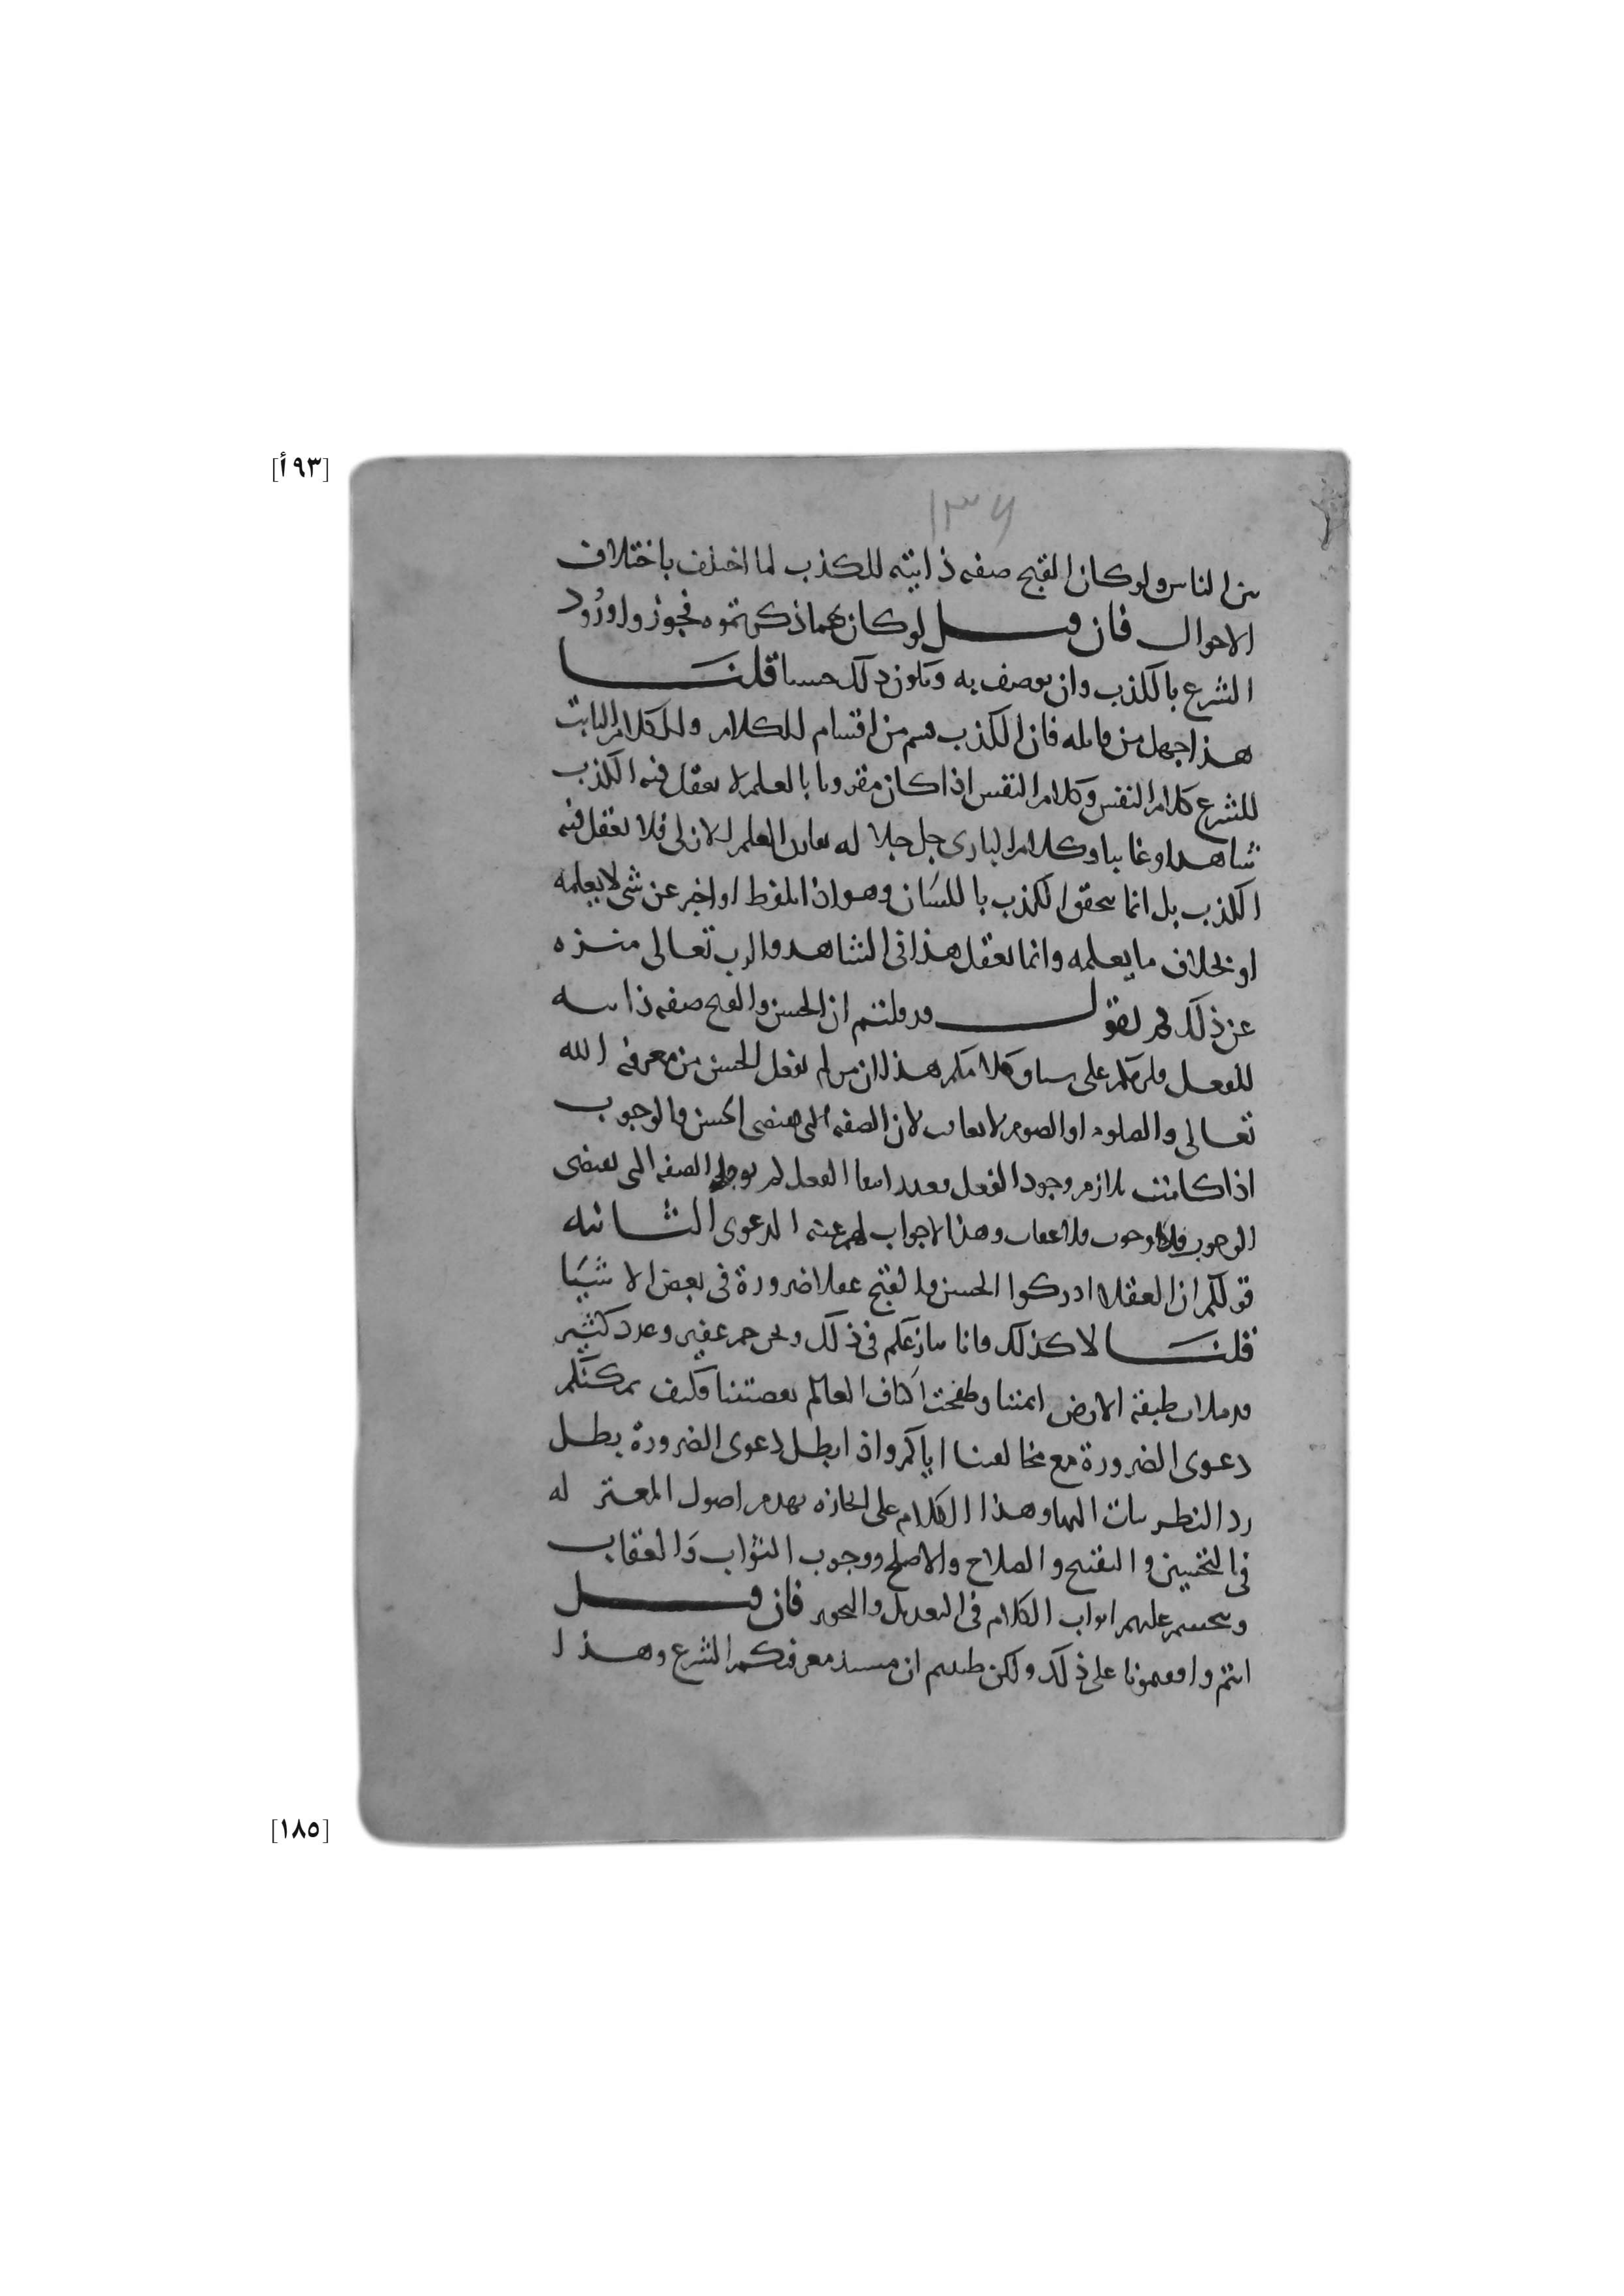 [٩٣أ]
١٣٦
من الناس ولو كان القبح صفه ذاتيه للكذب لما اختلف باختلاف
الاحوال فان قيل لو كان كما ذكرتموه فجوزوا ورُود
الشرع بالكذب وان يوصف به ويكون ذلك حسنا قلنا
هذا جهل من قائله فان الكذب قسم من اقسام الكلام والكلام الثابت
للشرع كلام النفس وكلام النفس اذا كان مقرونا بالعلم لا يعقل فيه الكذب
شاهدا وغايبا وكلام الباري جل جلاله يقارن العلم الازلي فلا يعقل فيه
الكذب بل انما يتحقق الكذب باللسان وهو اذا تلفظ او اخبر عن شي لا يعلمه
او بخلاف ما يعلمه وانما يعقل هذا في الشاهد والرب تعالى منزه
عن ذلك ثم نقول قد قلتم ان الحسن والقبح صفه ذاتيه
للفعل فلزمكم على سياق كلامكم هذا ان من لم يفعل الحسن من معرفة الله
تعالى والصلوه او الصوم لا يعاقب لان الصفه التي تقتضي الحسن والوجوب
اذا كانت تلازم وجود الفعل فعند انتفا الفعل لم يوجد الصفه التي تقتضي
الوجوب فلا وجوب فلا عقاب وهذا لا جواب لهم عنه الدعوى الثانيه
قولكم ان العقلا ادركوا الحسن والقبح عقلا ضرورة في بعض الاشيَا
قلنَا لا كذلك فانا ننازعكم في ذلك ونحن جم غفير وعدد كثير
قد ملات طبقة الارض ايمتنا وطفحت اكناف العالم بعصبتنا فكيف يمكنكم
دعوى الضرورة مع مخالفتنا اياكم واذا بطل دعوى الضرورة بطل
رد النظريات اليها وهذا الكلام على ايجازه يهدم اصول المعتزله
في التحسين والتقبيح والصلاح والاصلح ووجوب الثواب وَالعقاب
ويحسم عليهم ابواب الكلام في التعديل والتجوير فان قيل
انتم وافقتمونا على ذلك ولكن ظننتم ان مستند معرفتكم الشرع وهذا
[١٨٥]